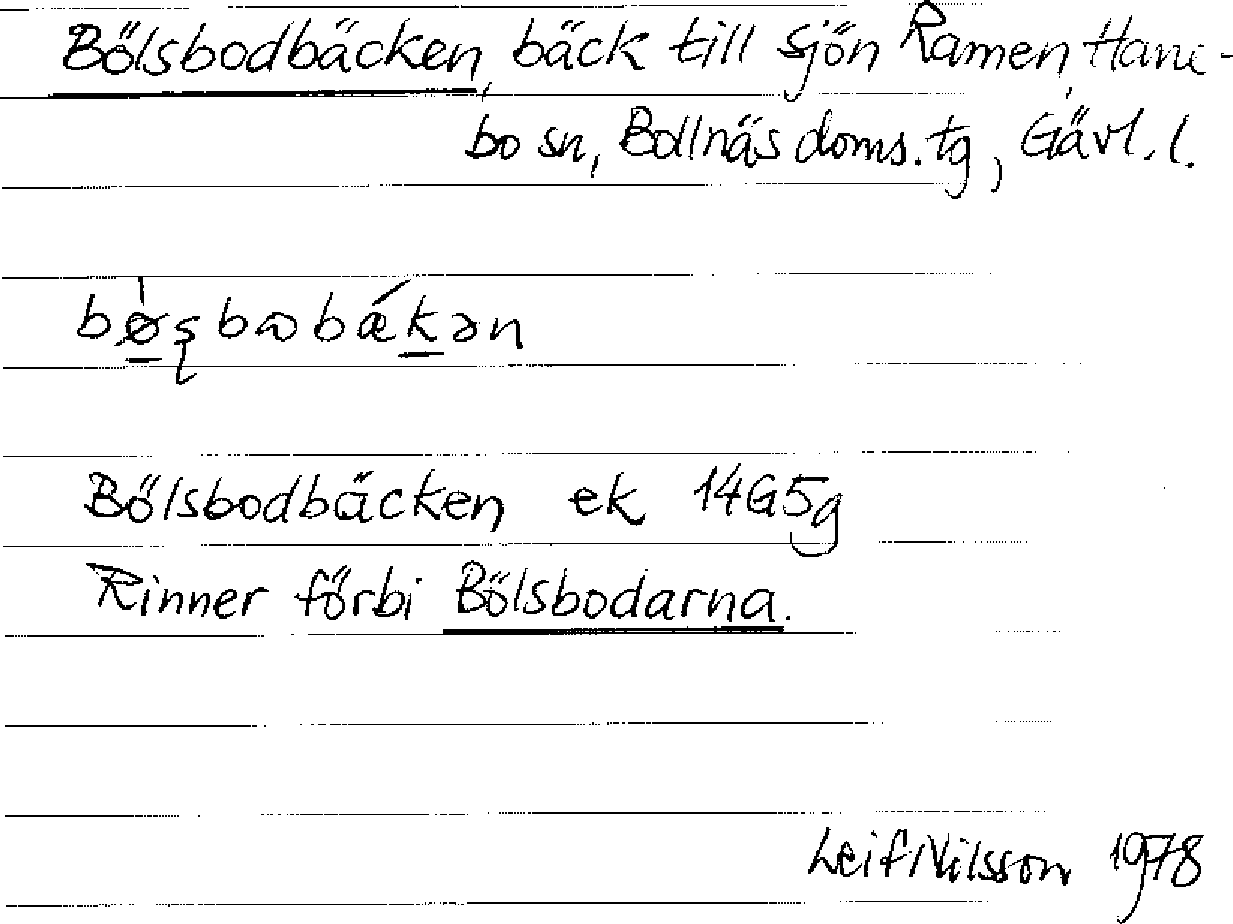 Bölsbodbäcken, bäck till sjön Ramen, Hane-
bo sn, Bollnäs doms.tg, Gävl. l.
Bölsbodbäcken ek 14G5g
Rinner förbi Bölsbodarna.
Leif Nilsson 1978